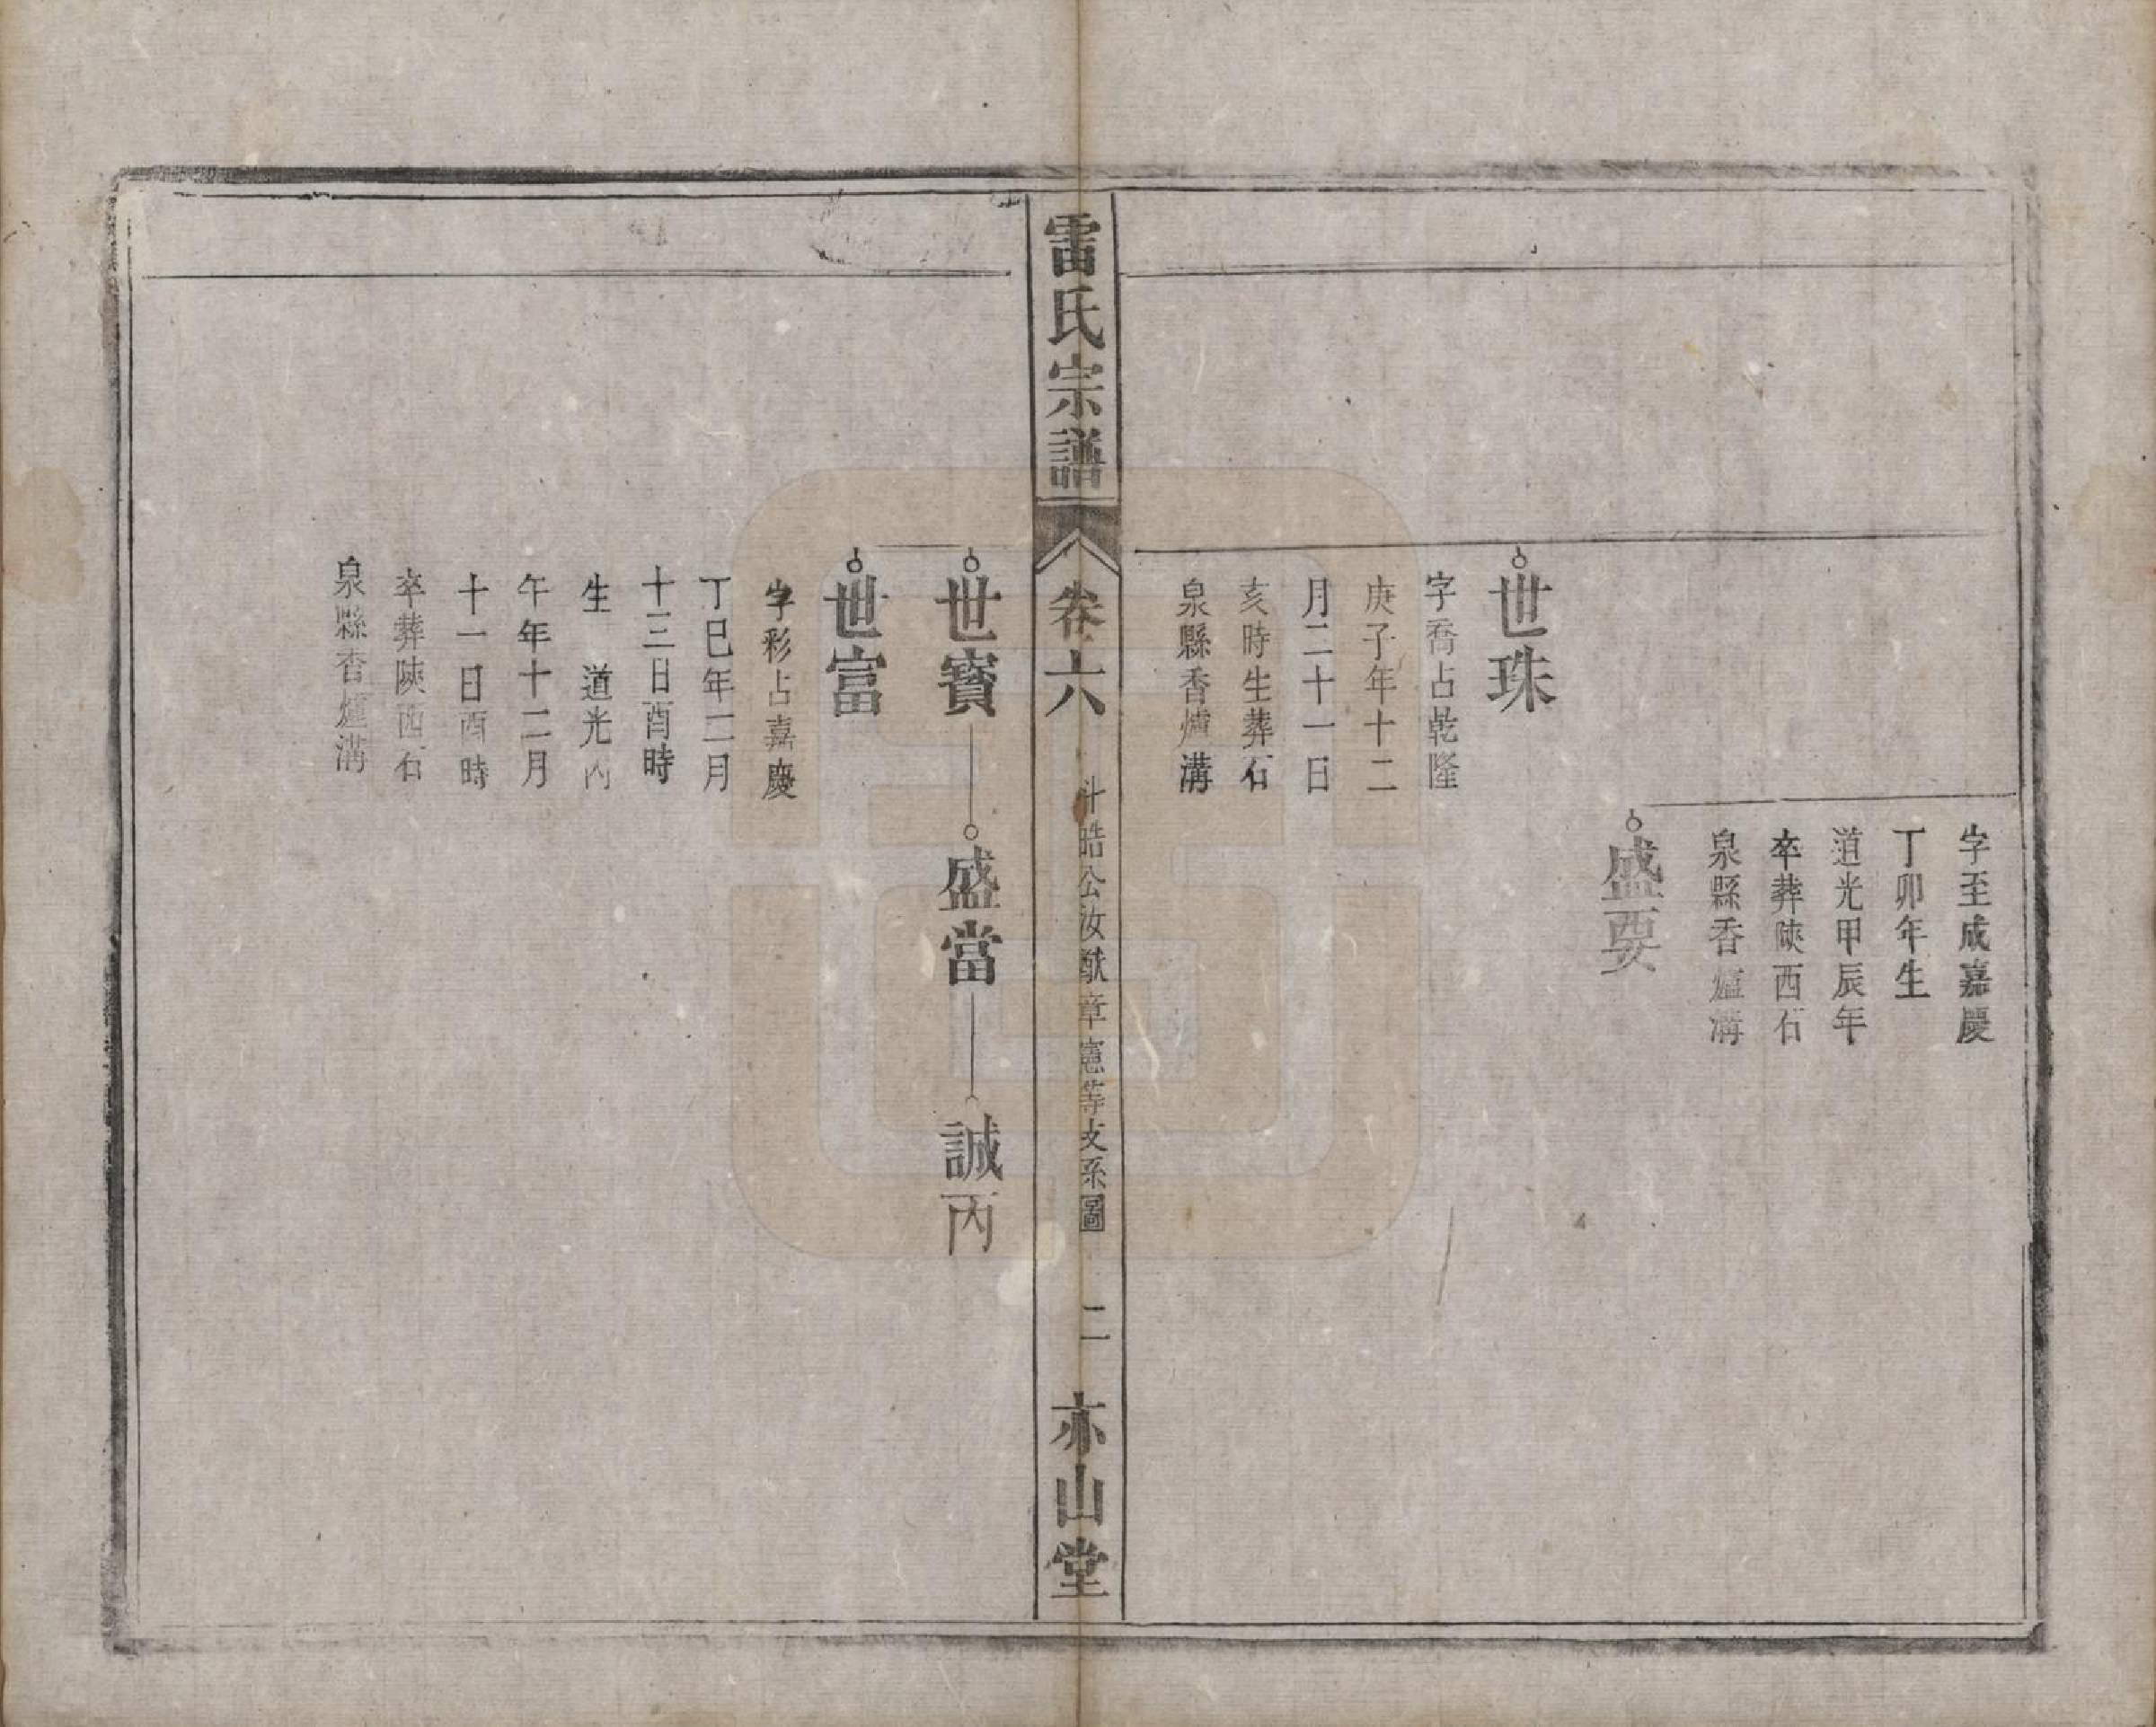 字至成嘉慶
丁卯年生
道光甲辰年
卒葬陝西石
泉縣香爐溝
盛要
世珠
字喬占乾隆
庚子年十二
月二十一日
亥時生葬石
泉縣香爐溝
雷氏宗譜
卷六
斗皓公汝猷章憲等支系圖
二
亦山堂
世寶
盛當
誠丙
世富
字彩占嘉慶
丁巳年二月
十三日酉時
生 道光丙
午年十二月
十一日酉時
卒葬陝西石
泉縣香爐溝